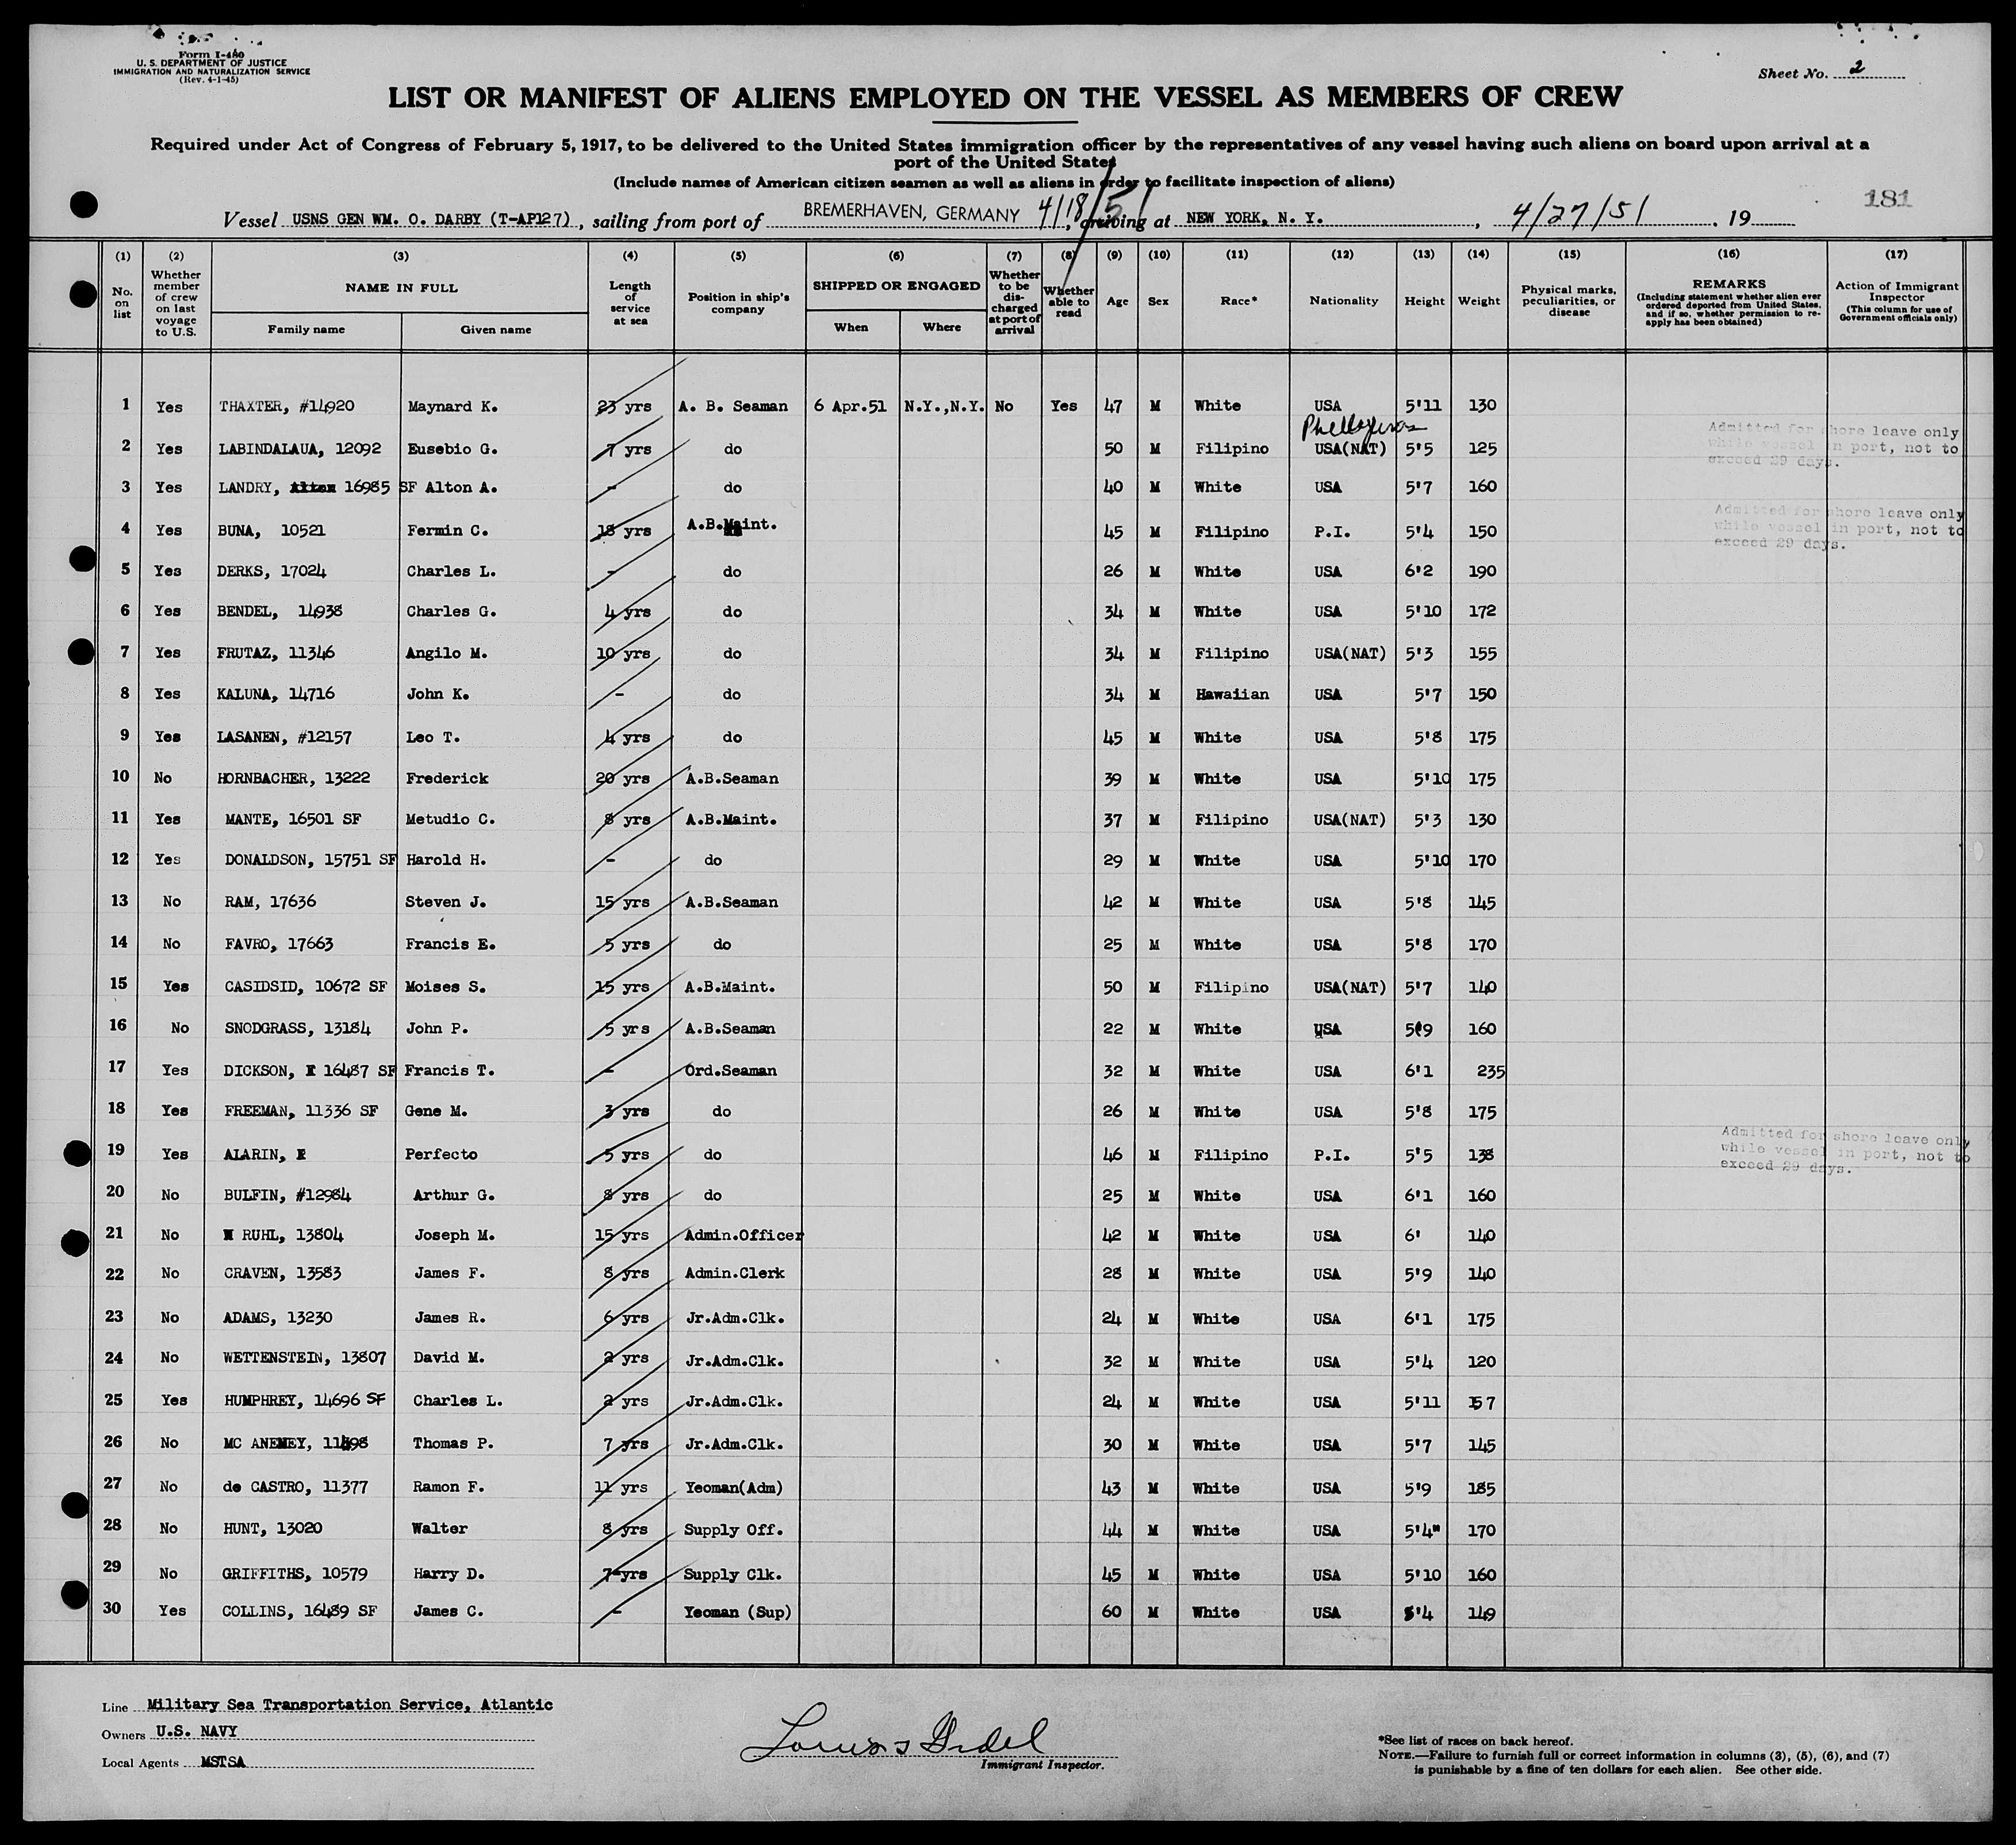 Form I-480
U. S. DEPARTMENT OF JUSTICE
IMMIGRATION AND NATURALIZATION SERVICE
(Rev. 4-1-45)
Sheet No. 2
LIST OR MANIFEST OF ALIENS EMPLOYED ON THE VESSEL AS MEMBERS OF CREW
Required under Act of Congress of February 5, 1917, to be delivered to the United States immigration officer by the representatives of any vessel having such aliens on board upon arrival at a
port of the United States
(Include names of American citizen seamen as well as aliens in order to facilitate inspection of aliens)
181
Vessel USNS GEN WM. O. DARBY (T-AP127), sailing from port of BREMERHAVEN, GERMANY 4/18/51, arriving at NEW YORK, N. Y., 4/27/51, 19
(1) (2) (3) (4) (5) (6) (7) (8) (9) (10) (11) (12) (13) (14) (15) (16) (17)
No. on list
Whether member of crew on last voyage to U.S.
NAME IN FULL
Family name Given name
Length of service at sea
Position in ship's company
SHIPPED OR ENGAGED
When Where
Whether to be discharged at port of arrival
Whether able to read
Age
Sex
Race*
Nationality
Height
Weight
Physical marks, peculiarities, or disease
REMARKS
(Including statement whether alien ever ordered deported from United States, and if so, whether permission to reapply has been obtained)
Action of Immigrant Inspector
(This column for use of Government officials only)
1 Yes THAXTER, #14920 Maynard K. 23 yrs A. B. Seaman 6 Apr.51 N.Y.,N.Y. No Yes 47 M White USA 5'11 130
2 Yes LABINDALAUA, 12092 Eusebio G. 7 yrs do 50 M Filipino USA(NAT) 5'5 125
Admitted for shore leave only
while vessel in port, not to
exceed 29 days.
3 Yes LANDRY, Alton 16985 SF Alton A. - do 40 M White USA 5'7 160
4 Yes BUNA, 10521 Fermin C. 18 yrs A.B.Maint. 45 M Filipino P.I. 5'4 150
Admitted for shore leave only
while vessel in port, not to
exceed 29 days.
5 Yes DERKS, 17024 Charles L. - do 26 M White USA 6'2 190
6 Yes BENDEL, 14938 Charles G. 4 yrs do 34 M White USA 5'10 172
7 Yes FRUTAZ, 11346 Angilo M. 10 yrs do 34 M Filipino USA(NAT) 5'3 155
8 Yes KALUNA, 14716 John K. - do 34 M Hawaiian USA 5'7 150
9 Yes LASANEN, #12157 Leo T. 4 yrs do 45 M White USA 5'8 175
10 No HORNBACHER, 13222 Frederick 20 yrs A.B.Seaman 39 M White USA 5'10 175
11 Yes MANTE, 16501 SF Metudio C. 8 yrs A.B.Maint. 37 M Filipino USA(NAT) 5'3 130
12 Yes DONALDSON, 15751 SF Harold H. - do 29 M White USA 5'10 170
13 No RAM, 17636 Steven J. 15 yrs A.B.Seaman 42 M White USA 5'8 145
14 No FAVRO, 17663 Francis E. 5 yrs do 25 M White USA 5'8 170
15 Yes CASIDSID, 10672 SF Moises S. 15 yrs A.B.Maint. 50 M Filipino USA(NAT) 5'7 140
16 No SNODGRASS, 13184 John P. 5 yrs A.B.Seaman 22 M White USA 5'9 160
17 Yes DICKSON, 16487 SF Francis T. - Ord.Seaman 32 M White USA 6'1 235
18 Yes FREEMAN, 11336 SF Gene M. 3 yrs do 26 M White USA 5'8 175
19 Yes ALARIN, Perfecto 5 yrs do 46 M Filipino P.I. 5'5 138
Admitted for shore leave only
while vessel in port, not to
exceed 29 days.
20 No BULFIN, #12984 Arthur G. 8 yrs do 25 M White USA 6'1 160
21 No RUHL, 13804 Joseph M. 15 yrs Admin.Officer 42 M White USA 6' 140
22 No CRAVEN, 13583 James F. 8 yrs Admin.Clerk 28 M White USA 5'9 140
23 No ADAMS, 13230 James R. 6 yrs Jr.Adm.Clk. 24 M White USA 6'1 175
24 No WETTENSTEIN, 13807 David M. 2 yrs Jr.Adm.Clk. 32 M White USA 5'4 120
25 Yes HUMPHREY, 14696 SF Charles L. 2 yrs Jr.Adm.Clk. 24 M White USA 5'11 157
26 No MC ANEMEY, Thomas P. 7 yrs Jr.Adm.Clk. 30 M White USA 5'7 145
27 No de CASTRO, 11377 Ramon F. 11 yrs Yeoman(Adm) 43 M White USA 5'9 185
28 No HUNT, 13020 Walter 8 yrs Supply Off. 44 M White USA 5'4" 170
29 No GRIFFITHS, 10579 Harry D. 7 yrs Supply Clk. 45 M White USA 5'10 160
30 Yes COLLINS, 16489 SF James C. - Yeoman (Sup) 60 M White USA 5'4 149
Line Military Sea Transportation Service, Atlantic
Owners U.S. NAVY
Local Agents MSTSA
Immigrant Inspector.
*See list of races on back hereof.
NOTE.—Failure to furnish full or correct information in columns (3), (5), (6), and (7)
is punishable by a fine of ten dollars for each alien. See other side.